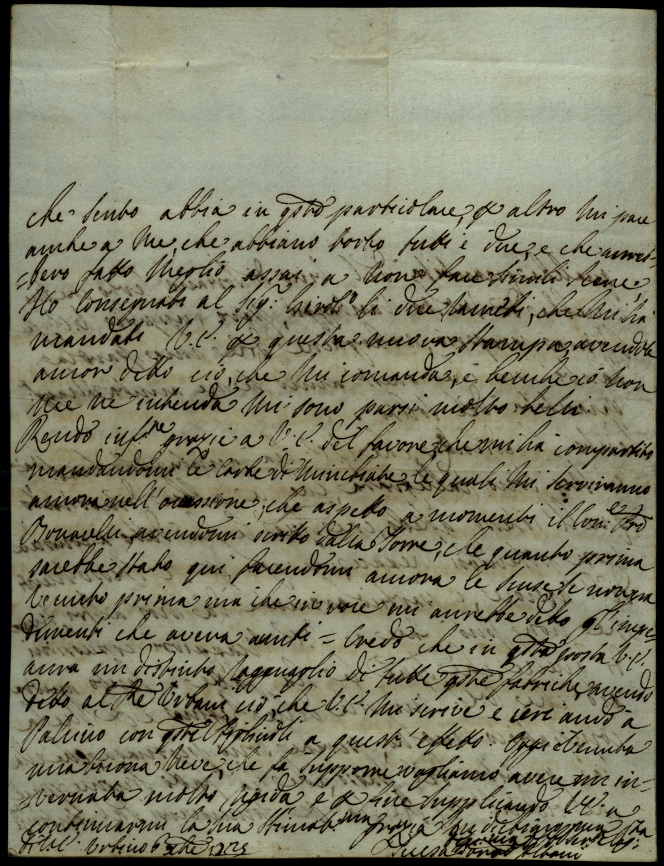 che sento abbia in qsto particolare, p altro mi pare
anche a me, che abbiano torto tutti e due, e che avreb-
=bero fatto meglio assai a non fare simili scene
Ho consegnati al Sig.r li due rametti, che mi ha
mandati V.E. p questa nuova stampa avendoli
ancor detto ciò, che mi comanda, e benche io non
me ne intenda mi sono parsi molto belli
Rendo inf.te grazie a V.E. del favore, che mi ha compartito
mandandomi le carte di Minchiate, le quali mi serviranno
ancora nell'occasione, che aspetto a momenti il Con.e
Bonarelli avendomi scritto dalla Torre, che quanto prima
sarebbe stato qui facendomi ancora le scuse, se non era
venuto prima ma che in voce mi avrebbe detto gl'impe
dimenti che aveva auti = Credo che in qsta posta V.E.
avrà un distinto ragguaglio di tutte qste fabriche, avendo
detto al Urbani ciò, che V.E. mi scrive e ieri andò a
con qsti figliuoli a quest'effetto. Oggi è venuta
una buona neve, che fa supporre vogliamo avere un in-
=vernata molto rigida e p fine supplicando V.E. a
continuarmi la sua stimat.ma grazia mi dichiaro
di V.E. Urbino Teresa Albani